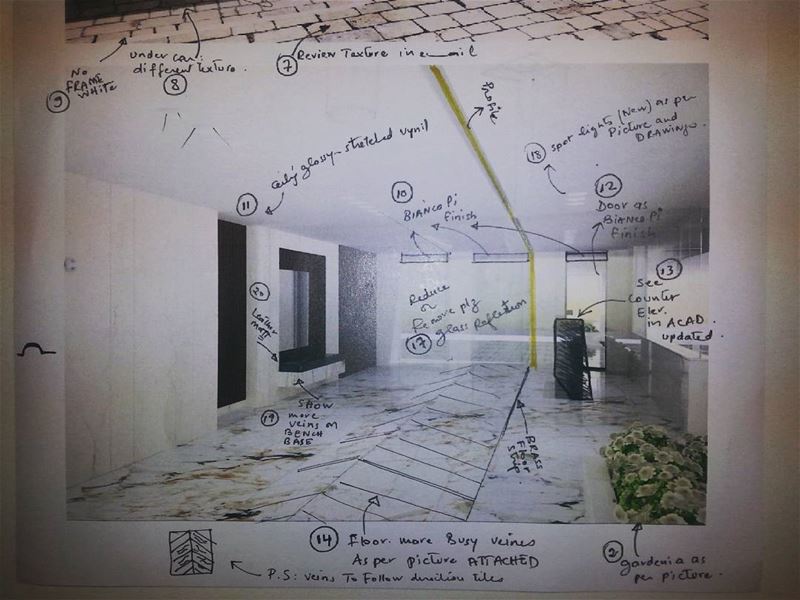 No
FRAME
WHITE
9
under can:
different texture.
8
7 Review Texture in email
Profile
18 spot lights (New) as per
Picture and
DRAWING.
ceil'g glossy stretched vynil
11
10
BIANCO Pi
finish
12
Door as
BIANCO Pi
finish
13
See
counter
Elev.
in ACAD.
updated.
20
Leather
MATT
Reduce
or
Remove plz
glass Reflection
17
19
SHOW
more
veins on
BENCH
BASE
BRASS
Floor
Strip
14 Floor. more Busy veines
As per picture ATTACHED
P.S: veins To Follow direction tiles
2 gardenia as
per picture.